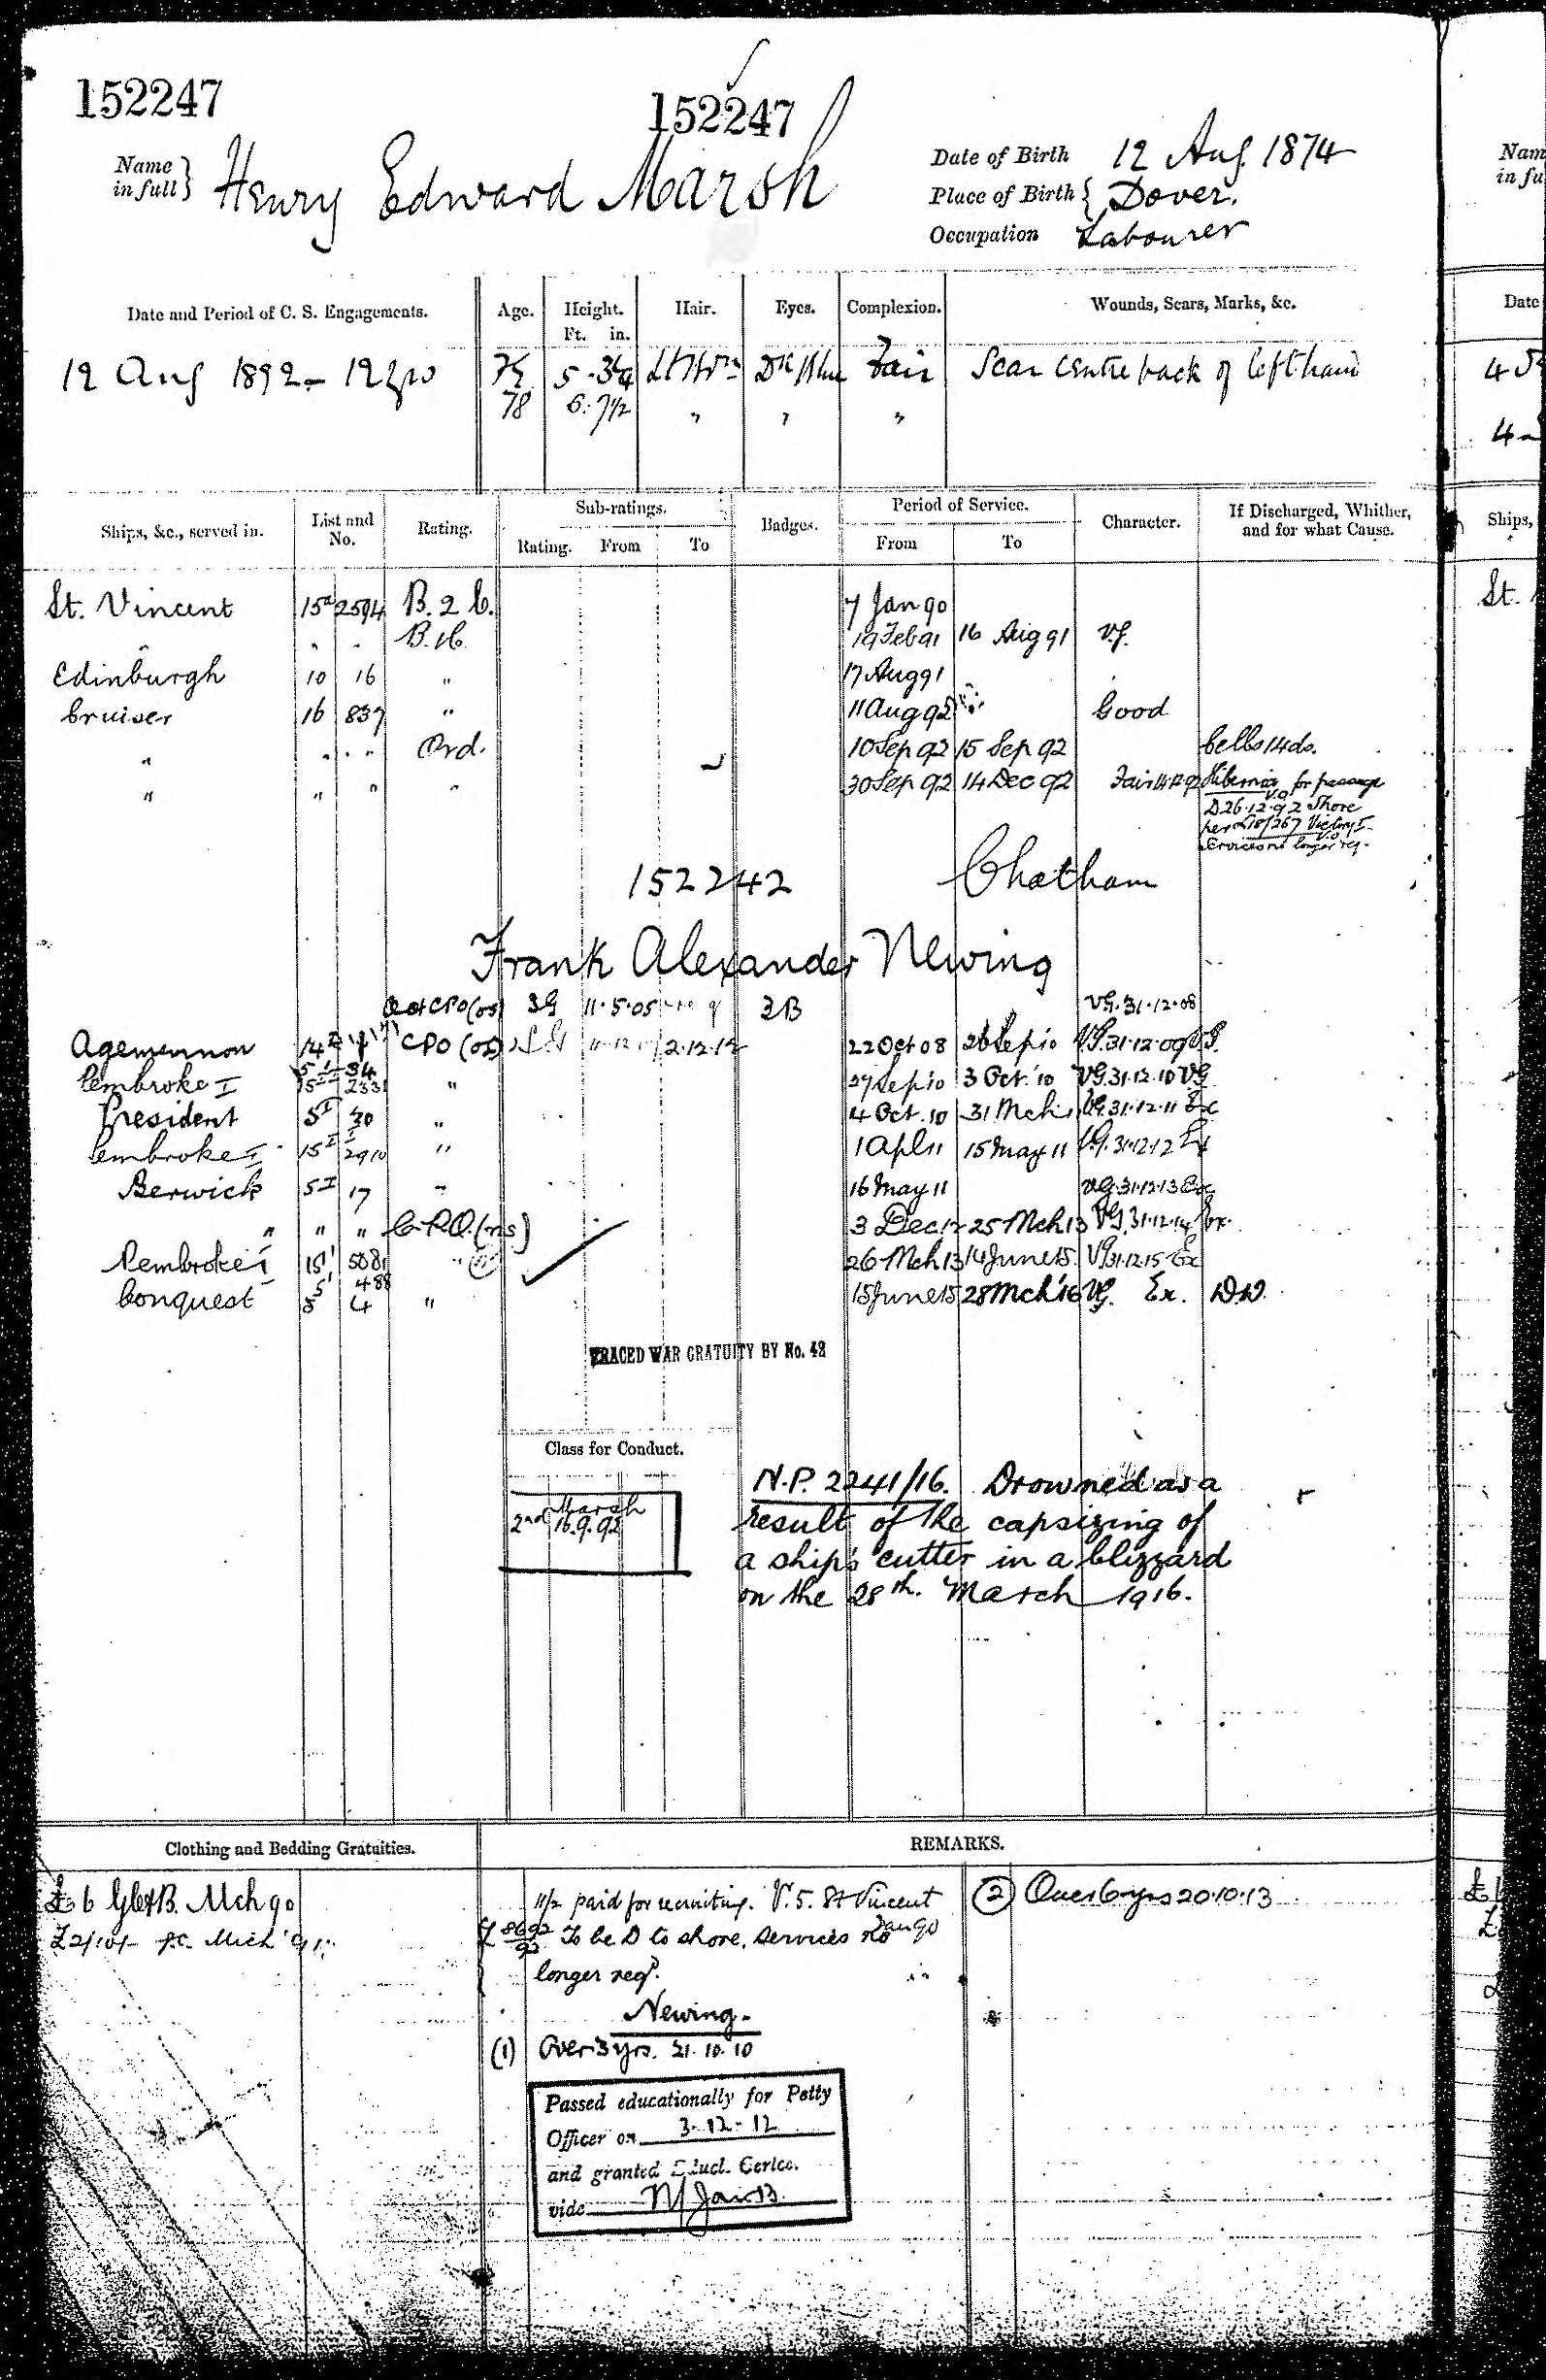 152247
152247
Name in full } Henry Edward Marsh
Date of Birth 12 Aug. 1874
Place of Birth { Dover.
Occupation Labourer
Nam
in fu
Date and Period of C. S. Engagements. Age. Height. Ft. in. Hair. Eyes. Complexion. Wounds, Scars, Marks, &c.
Date
12 Aug 1892 - 12 5 - Fair Scar centre back of left hand
18 5. 7½ " " "
Ships, &c., served in. List and No. Rating. Sub-ratings. Rating. From To Badges. Period of Service. From To Character. If Discharged, Whither, and for what Cause.
Ships,
St. Vincent 15a 2594 B. 2 C. 7 Jan 90
" . . B.1C. 19 Feb 91 16 Aug 91 V.G.
Edinburgh 10 16 " 17 Aug 91
Cruiser 16 837 " 11 Aug 92 Good
" " " Ord. 10 Sep 92 15 Sep 92 Cells 14 ds.
" " " " 30 Sep 92 14 Dec 92 Fair 14.12.92 Hibernia for passage
D 26.12.92 Shore
per 18/267 Victory I
services no longer req.
152242 Chatham
Frank Alexander Newing
CPO (os) SG 11.5.05 3B VG.31.12.08
Agamemnon CPO (os) 2.12.12 22 Oct 08 26 Sep 10 VG.31.12.09 VG.
Pembroke I 15 2331 " 27 Sep 10 3 Oct. 10 VG.31.12.10 VG
President 5I 30 " 4 Oct. 10 31 Mch 11 VG.31.12.11 Ex
Pembroke I 15I 2910 " 1 Apl 11 15 May 11 V.G.31.12.12 Ex
Berwick 5I 17 " 16 May 11 VG.31.12.13 Ex
" " " C.P.O.(ns) 3 Dec 12 25 Mch 13 VG.31.12.14 Ex.
Pembroke I 15I 5081 " 26 Mch 13 14 June 15 VG 31.12.15 Ex
Conquest 5 4 " 15 June 15 28 Mch 16 VG. Ex. D.D.
TRACED WAR GRATUITY BY No. 42
Class for Conduct.
Marsh
2nd 16.9.92
N.P. 2241/16. Drowned as a
result of the capsizing of
a ship's cutter in a blizzard
on the 28th. March 1916.
Clothing and Bedding Gratuities. REMARKS.
£6 Mch 90
£2/10/- Mch 91
11/2 paid for recruiting. V. 5. St Vincent Jan 90
To be D to shore. Services no
longer reqd.
Newing.
(1) Over 3 yrs. 21.10.10
(2) Over 6 yrs 20.10.13
Passed educationally for Petty
Officer on 3-12-12
and granted Educl. Certce.
vide N/Jan 13